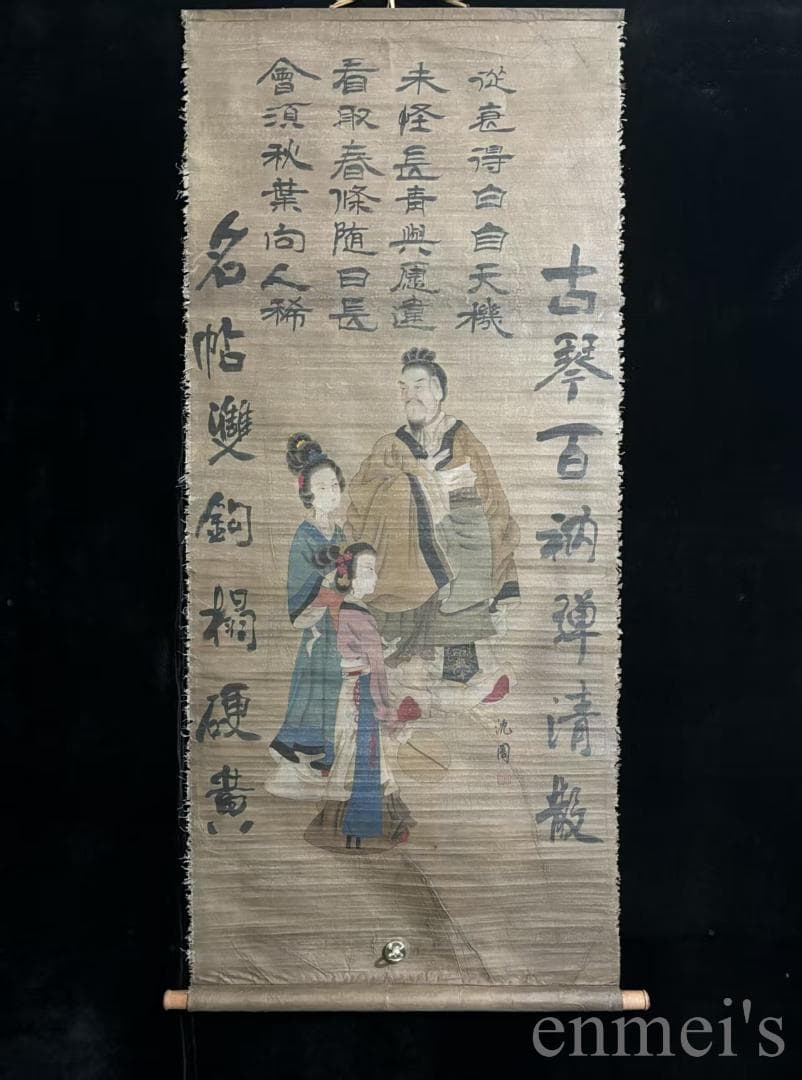 古琴百衲弹清散
從衰得白自天機
未怪長青與愿違
看取春條随日長
會須秋葉向人稀
名帖雙鉤榻硬黄
沈周
enmei's